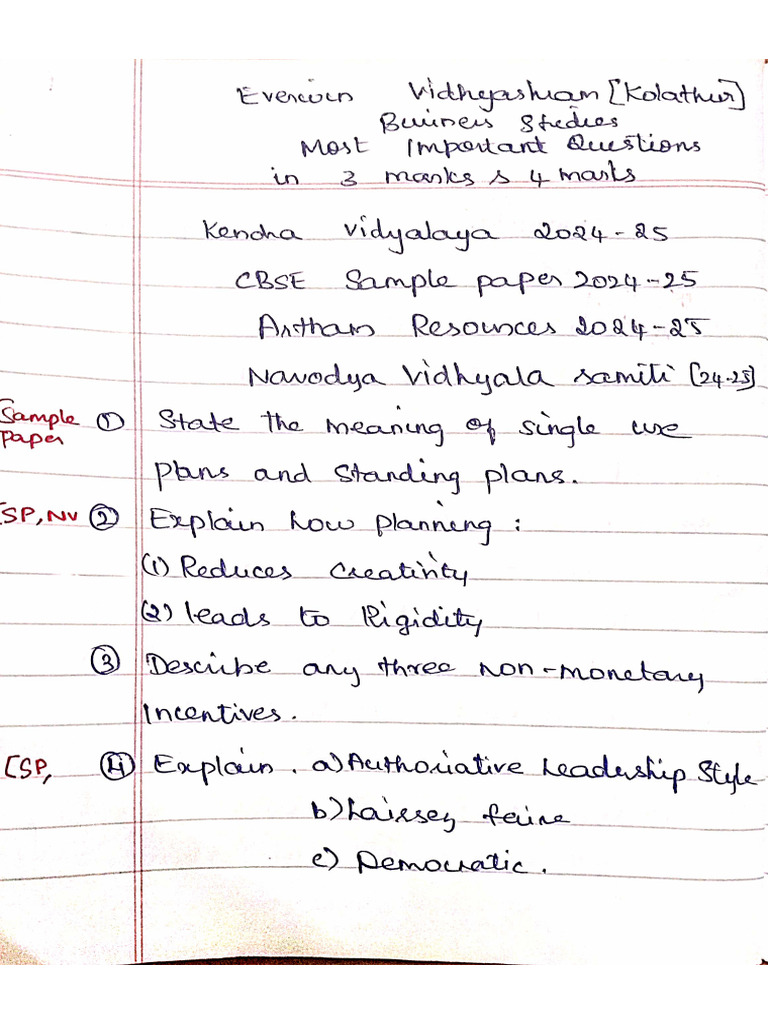 Everwin Vidhyashram [Kolathur]
Business Studies
Most Important Questions
in 3 marks & 4 marks
Kendra Vidyalaya 2024-25
CBSE Sample paper 2024-25
Ariham Resources 2024-25
Navodya Vidhyala Samiti [24-25]
Sample Paper ① State the meaning of single use
plans and standing plans.
[SP, NV ② Explain how planning :
(1) Reduces Creativity
(2) leads to Rigidity
③ Describe any three non-monetary
Incentives.
[SP, ④ Explain. a) Authoriative Leadership Style
b) Laissez faire
c) Democratic.